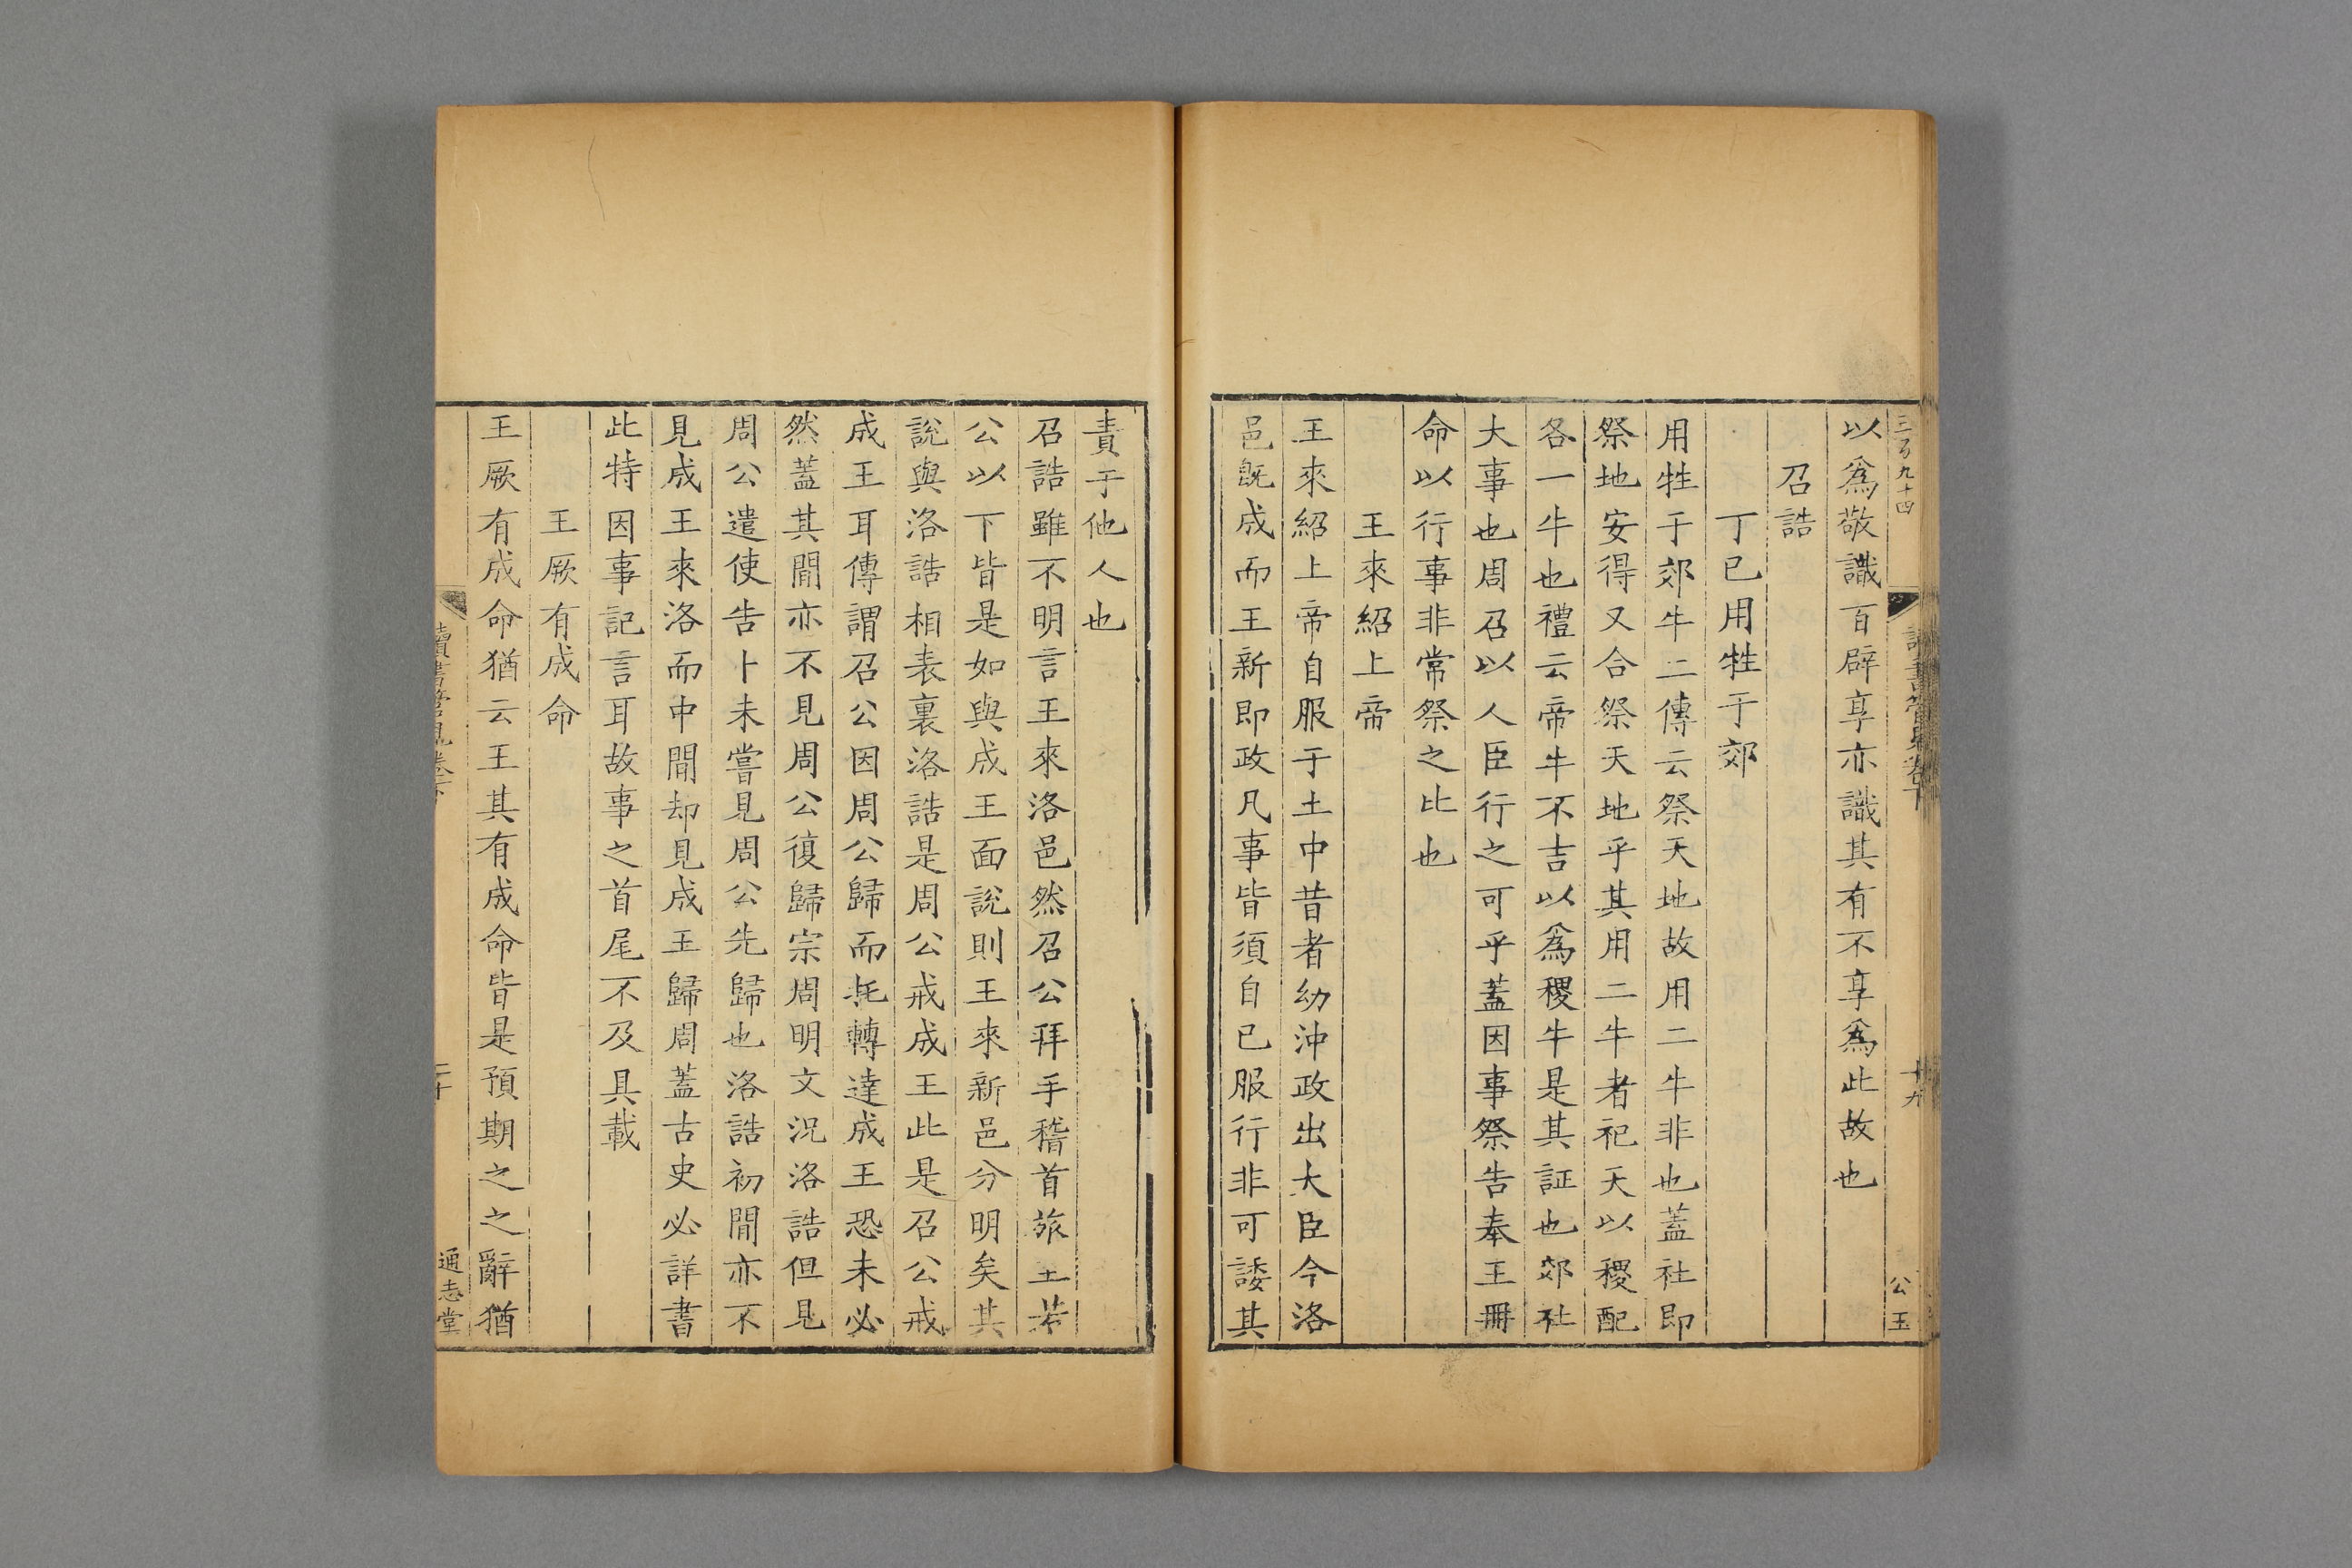 三百九十四
讀書管見卷下
十九
公玉
以爲敬識百辟享亦識其有不享爲此故也
召誥
丁巳用牲于郊
用牲于郊牛二傳云祭天地故用二牛非也蓋社即
祭地安得又合祭天地乎其用二牛者祀天以稷配
各一牛也禮云帝牛不吉以爲稷牛是其証也郊社
大事也周召以人臣行之可乎蓋因事祭告奉王冊
命以行事非常祭之比也
王來紹上帝
王來紹上帝自服于土中昔者幼沖政出大臣今洛
邑旣成而王新即政凡事皆須自已服行非可諉其
責于他人也
召誥雖不明言王來洛邑然召公拜手稽首旅王若
公以下皆是如與成王面說則王來新邑分明矣其
說與洛誥相表裏洛誥是周公戒成王此是召公戒
成王耳傳謂召公因周公歸而托轉達成王恐未必
然蓋其間亦不見周公復歸宗周明文況洛誥但見
周公遣使告卜未嘗見周公先歸也洛誥初間亦不
見成王來洛而中間却見成王歸周蓋古史必詳書
此特因事記言耳故事之首尾不及具載
王厥有成命
王厥有成命猶云王其有成命皆是預期之之辭猶
讀書管見卷下
二十
通志堂